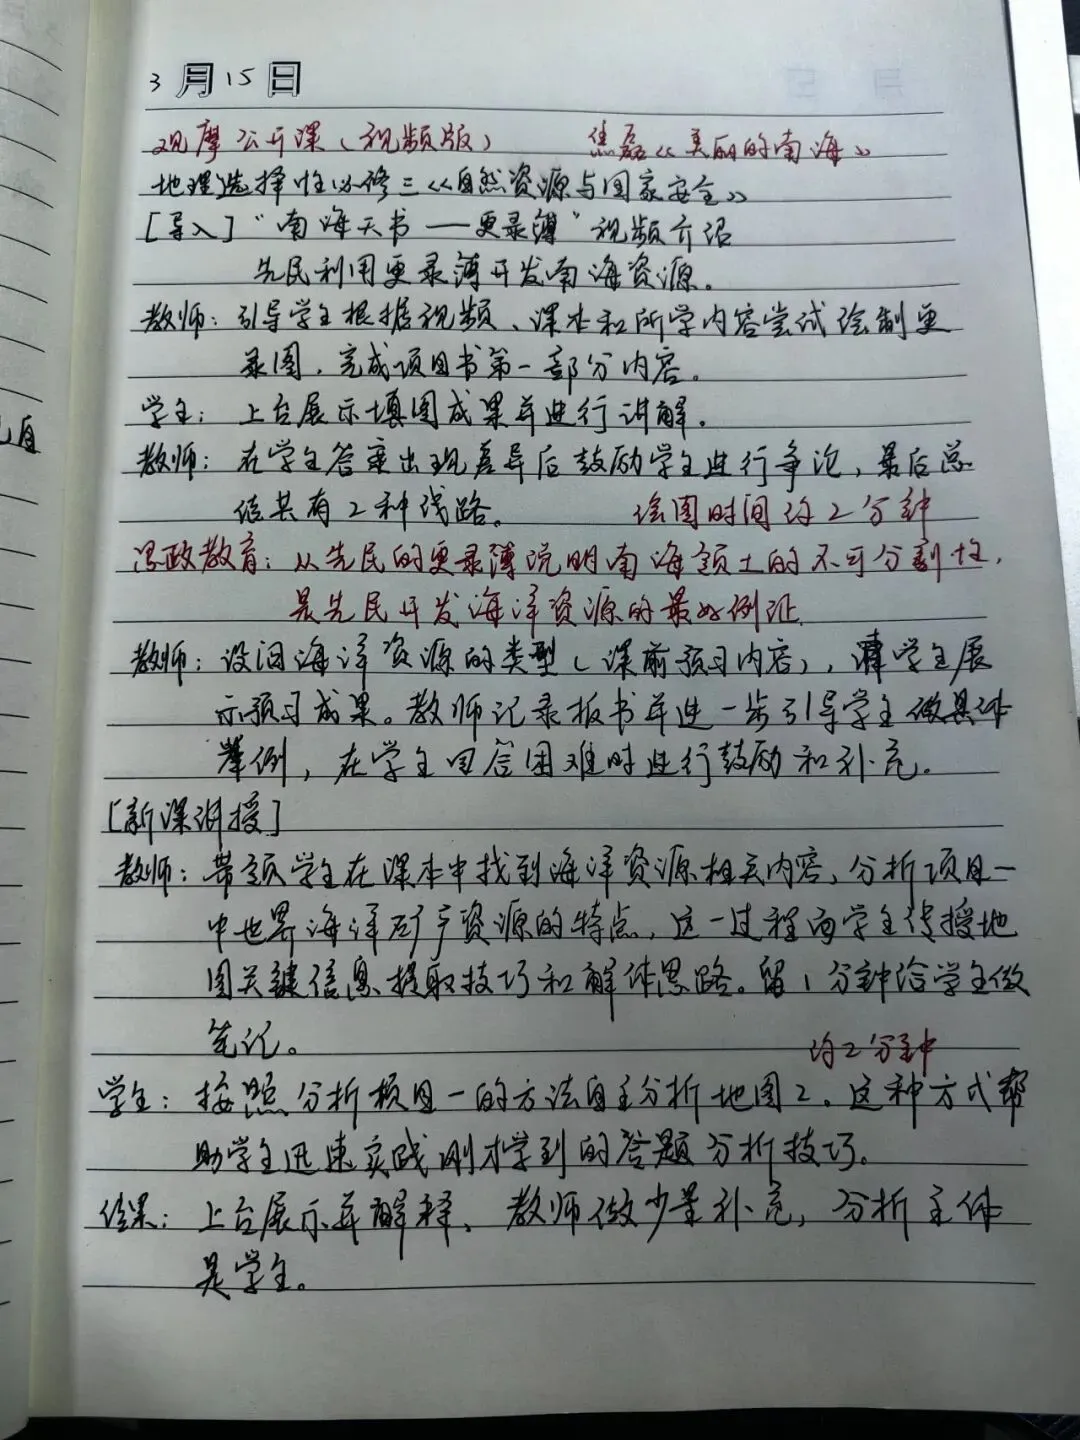 3月15日
观摩公开课(视频版) 焦磊《美丽的南海》
地理选择性必修三《自然资源与国家安全》
[导入]“南海天书——更录簿”视频介绍
先民利用更录簿开发南海资源。
教师:引导学生根据视频、课本和所学内容尝试绘制更
录图,完成项目书第一部分内容。
学生:上台展示填图成果并进行讲解。
教师:在学生答案出现差异后鼓励学生进行争论,最后总
结共有2种线路。 绘图时间约2分钟
思政教育:从先民的更录簿说明南海领土的不可分割性,
是先民开发海洋资源的最好例证.
教师:设问海洋资源的类型(课前预习内容),请学生展
示预习成果。教师记录板书并进一步引导学生做具体
举例,在学生回答困难时进行鼓励和补充.
[新课讲授]
教师:带领学生在课本中找到海洋资源相关内容,分析项目一
中世界海洋矿产资源的特点,这一过程向学生传授地
图关键信息提取技巧和解体思路。留1分钟给学生做
笔记。 约2分钟
学生:按照分析项目一的方法自主分析地图2。这种方式帮
助学生迅速实践刚才学到的答题分析技巧.
结果:上台展示并解释、教师做少量补充,分析主体
是学生。